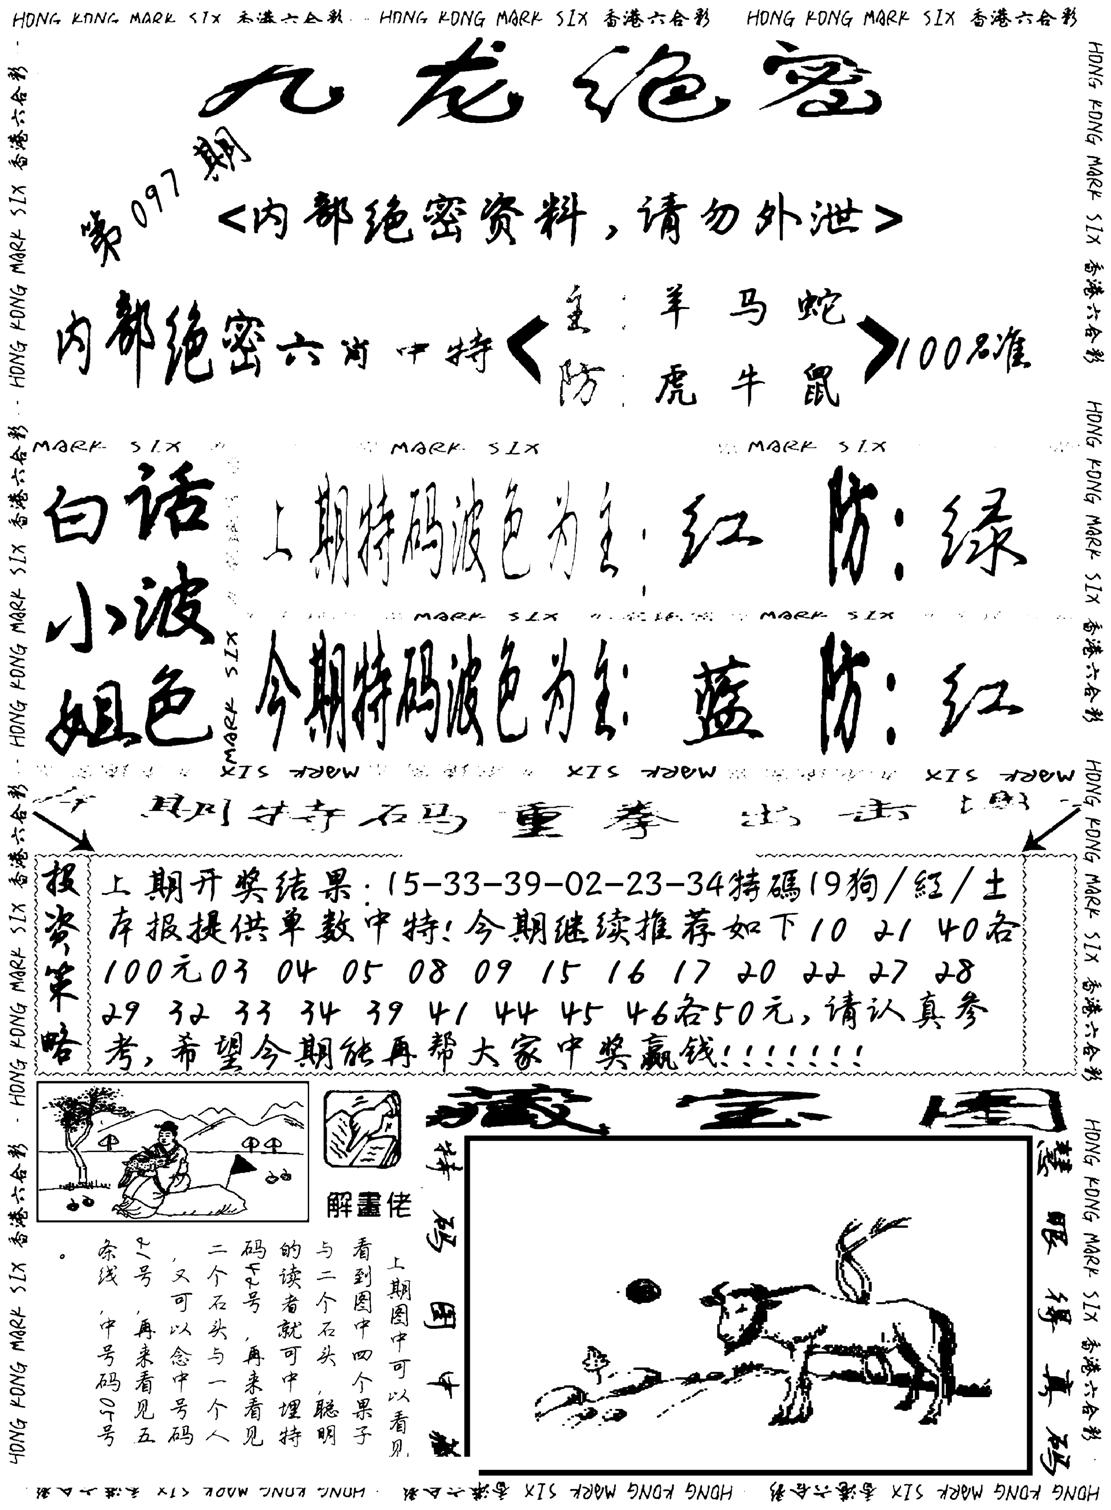 HONG KONG MARK SIX 香港六合彩 HONG KONG MARK SIX 香港六合彩 HONG KONG MARK SIX 香港六合彩
九龙绝密
第097期
<内部绝密资料,请勿外泄>
内部绝密六肖中特
主:羊马蛇
防:虎牛鼠
100%准
MARK SIX MARK SIX MARK SIX
白话
小波
姐色
上期特码波色为主:红 防:绿
MARK SIX MARK SIX
今期特码波色为主:蓝 防:红
MARK SIX
MARK SIX MARK SIX MARK SIX
期特码重拳出击
投资策略
上期开奖结果:15-33-39-02-23-34特碼19狗/紅/土
本报提供单数中特!今期继续推荐如下10 21 40各
100元03 04 05 08 09 15 16 17 20 22 27 28
29 32 33 34 39 41 44 45 46各50元,请认真参
考,希望今期能再帮大家中奖赢钱!!!!!!!
解畫佬
上期图中可以看见
看到图中四个果子
与二个石头,聪明
的读者就可中埋特
码42号,再来看见
二个石头与一个人
,又可以念中号码
21号,再来看见五
条线,中号码09号
。
藏宝图
特码图中藏
慧眼得真码
HONG KONG MARK SIX 香港六合彩 HONG KONG MARK SIX 香港六合彩 HONG KONG MARK SIX 香港六合彩